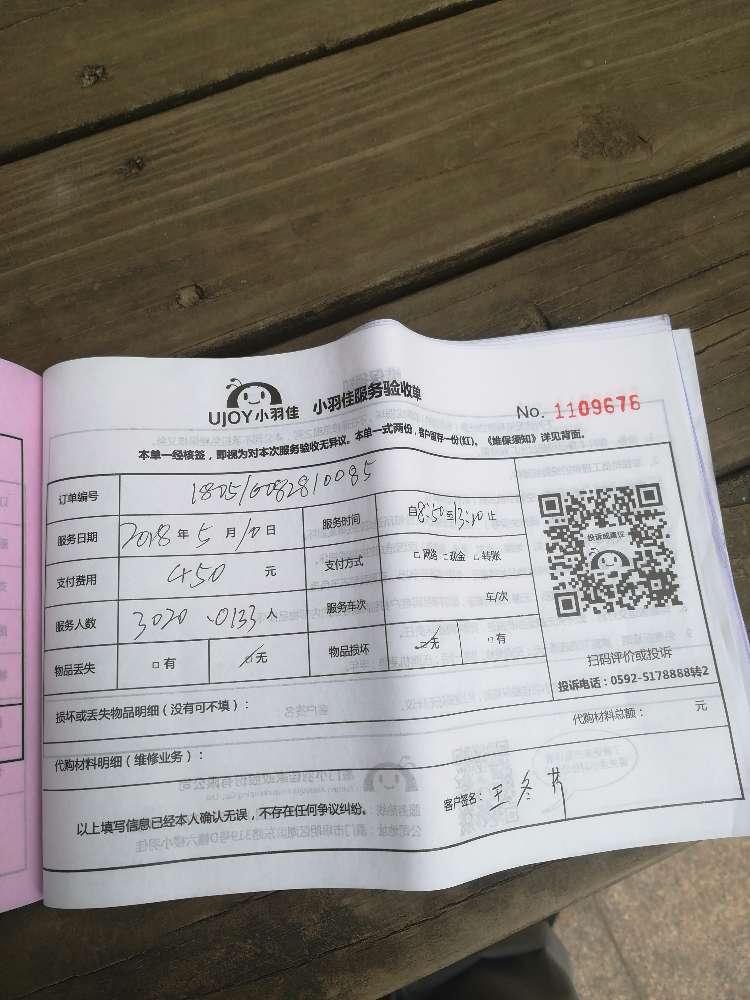 UJOY小羽佳 小羽佳服务验收单
No. 1109676
本单一经核签，即视为对本次服务验收无异议。本单一式两份，客户留存一份(红)。《维保须知》详见背面。
订单编号 180516082810085
服务日期 2018年5月10日 服务时间 自8:50至13:10止
支付费用 450元 支付方式 □网络 □现金 □转账
服务人数 3020、0133人 服务车次 车/次
物品丢失 □有 ☑无 物品损坏 ☑无 □有
投诉或建议
扫码评价或投诉
投诉电话：0592-5178888转2
损坏或丢失物品明细（没有可不填）：
代购材料明细（维修业务）： 代购材料总额： 元
以上填写信息已经本人确认无误，不存在任何争议纠纷。 客户签名：王冬